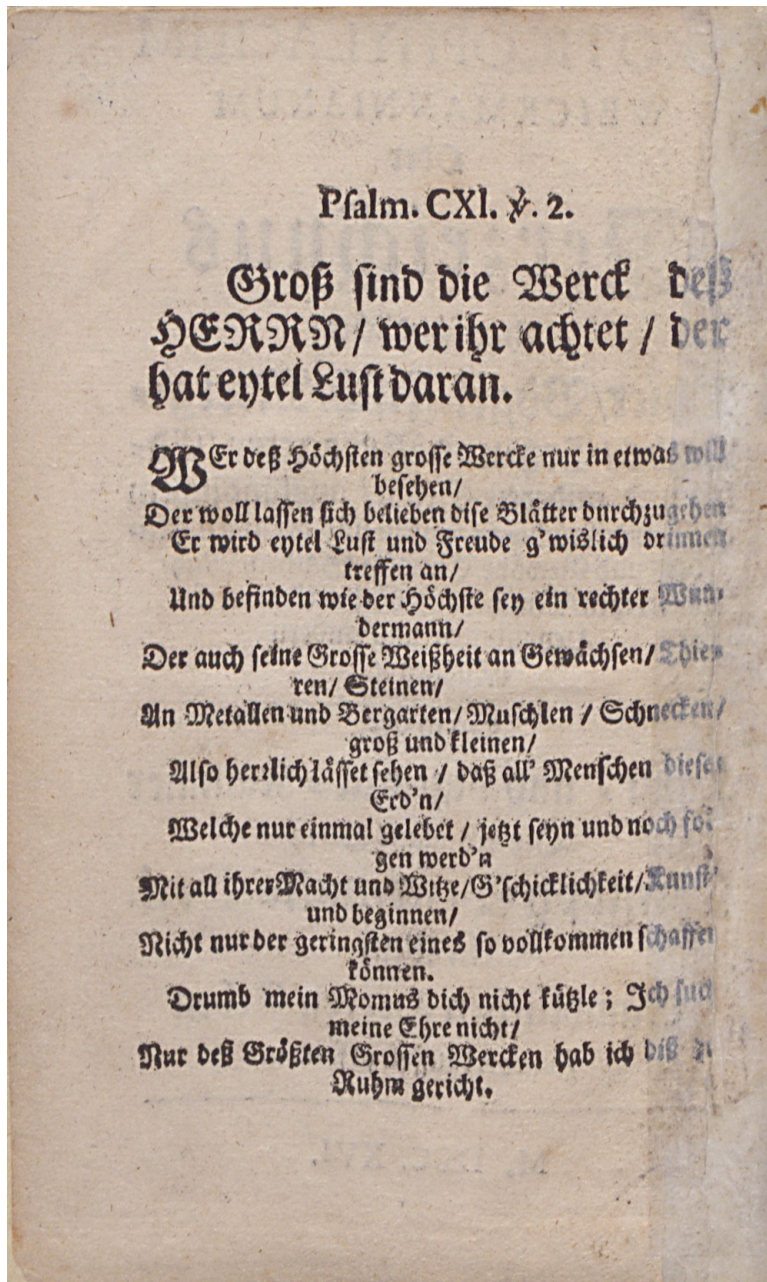 Psalm. CXI. ℣. 2.
Groß sind die Werck deß
HERRN/ wer ihr achtet / der
hat eytel Lust daran.
WEr deß Höchsten grosse Wercke nur in etwas will
besehen/
Der woll lassen sich belieben dise Blätter durchzugehen
Er wird eytel Lust und Freude g'wislich drinnen
treffen an/
Und befinden wie der Höchste sey ein rechter Wun-
dermann/
Der auch seine Grosse Weißheit an Gewächsen/ Thie-
ren/ Steinen/
An Metallen und Bergarten/ Muschlen / Schnecken/
groß und kleinen/
Also herrlich lässet sehen / daß all' Menschen dieser
Erd'n/
Welche nur einmal gelebet / jetzt seyn und noch fol-
gen werd'n
Mit all ihrer Macht und Witze/ G'schicklichkeit/ Kunst
und beginnen/
Nicht nur der geringsten eines so vollkommen schaffen
können.
Drumb mein Momus dich nicht kützle ; Ich such
meine Ehre nicht/
Nur deß Größten Grossen Wercken hab ich diß
Ruhm gericht.